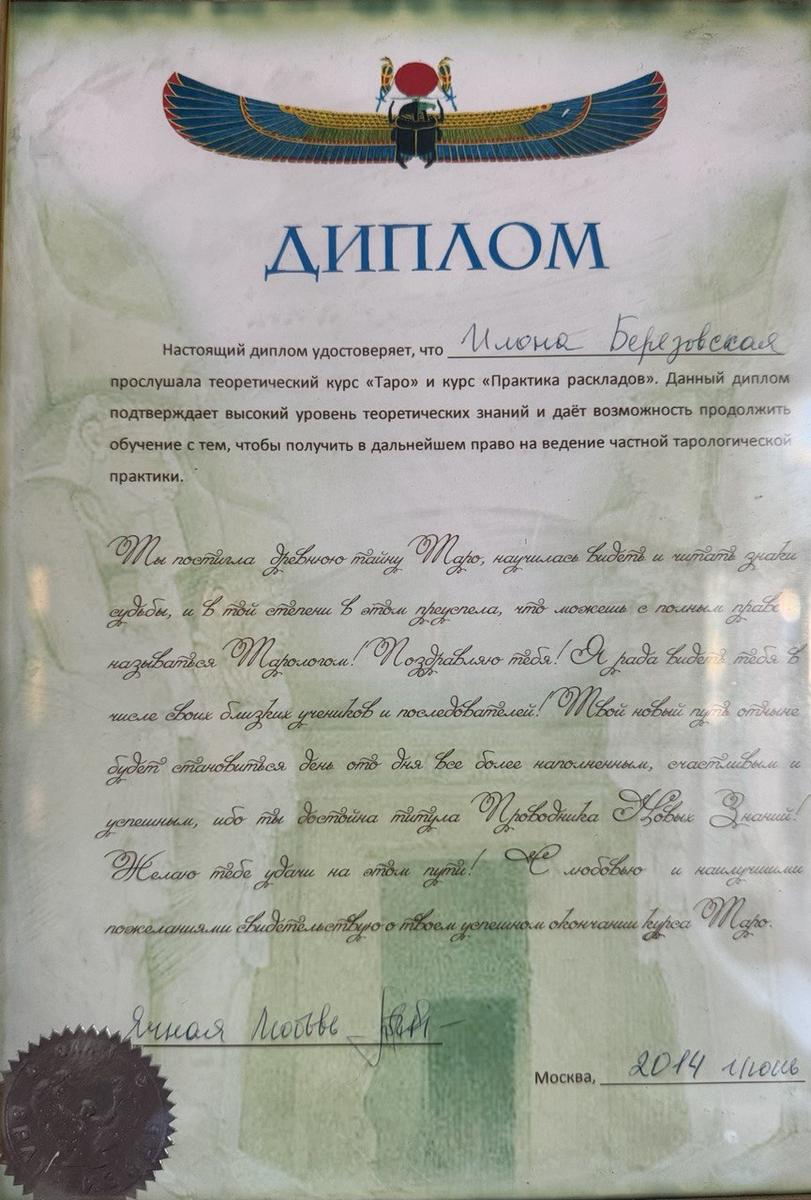 ДИПЛОМ
Настоящий диплом удостоверяет, что Илона Березовская
прослушала теоретический курс «Таро» и курс «Практика раскладов». Данный диплом
подтверждает высокий уровень теоретических знаний и даёт возможность продолжить
обучение с тем, чтобы получить в дальнейшем право на ведение частной тарологической
практики.
Ты постигла древнюю тайну Таро, научилась видеть и читать знаки
судьбы, и в той степени в этом преуспела, что можешь с полным право
называться Тарологом! Поздравляю тебя! Я рада видеть тебя в
числе своих близких учеников и последователей! Твой новый путь отныне
будет становиться день ото дня все более наполненным, счастливым и
успешным, ибо ты достойна титула Проводника Новых Знаний!
Желаю тебе удачи на этом пути! С любовью и наилучшими
пожеланиями свидетельствую о твоем успешном окончании курса Таро.
Ячная Любовь
Москва, 2014 июнь